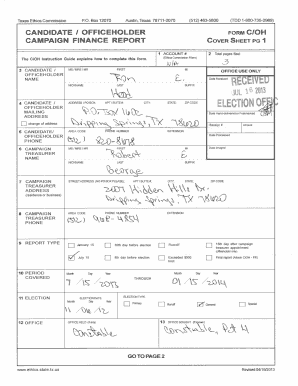 Texas Ethics Commission P.O. Box 12070 Austin, Texas 78711-2070 (512) 463-5800 (TDD 1-800-735-2989)
CANDIDATE / OFFICEHOLDER FORM C/OH
CAMPAIGN FINANCE REPORT COVER SHEET PG 1
The C/OH INSTRUCTION GUIDE explains how to complete this form.
1 ACCOUNT #
(Ethics Commission Filers)
N/A
2 Total pages filed:
3
3 CANDIDATE / OFFICEHOLDER NAME
MS / MRS / MR FIRST MI
Ron E.
NICKNAME LAST SUFFIX
Hood
OFFICE USE ONLY
Date Received
RECEIVED
JUL 15 2013
ELECTION
4 CANDIDATE / OFFICEHOLDER MAILING ADDRESS
change of address
ADDRESS / PO BOX; APT / SUITE #; CITY; STATE; ZIP CODE
P.O. Box 1602
Dripping Springs, TX 78620
5 CANDIDATE / OFFICEHOLDER PHONE
AREA CODE PHONE NUMBER EXTENSION
(512)
6 CAMPAIGN TREASURER NAME
MS / MRS / MR FIRST MI
Robert E.
NICKNAME LAST SUFFIX
George
Receipt # Amount
Date Processed
Date Imaged
7 CAMPAIGN TREASURER ADDRESS
(residence or business)
Hidden Hills Dr.
Dripping Springs, TX 78620
8 CAMPAIGN TREASURER PHONE
AREA CODE PHONE NUMBER EXTENSION
(512)
9 REPORT TYPE
January 15 30th day before election Runoff 15th day after campaign treasurer appointment (officeholder only)
July 15 8th day before election Exceeded $500 limit Final report (Attach C/OH - FR)
10 PERIOD COVERED
Month Day Year THROUGH Month Day Year
11 ELECTION
ELECTION DATE
Month Day Year
ELECTION TYPE
Primary Runoff General Special
12 OFFICE
OFFICE HELD (if any)
Constable
13 OFFICE SOUGHT (if known)
Constable, Pct 4
GO TO PAGE 2
www.ethics.state.tx.us Revised